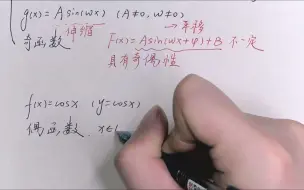 g(x) = Asin(wx) (A≠0, w≠0)
奇函数 伸缩 → 平移
F(x)=Asin(wx+φ)+B 不一定
具有奇偶性
f(x)=cosx (y=cosx)
偶函数. x∈